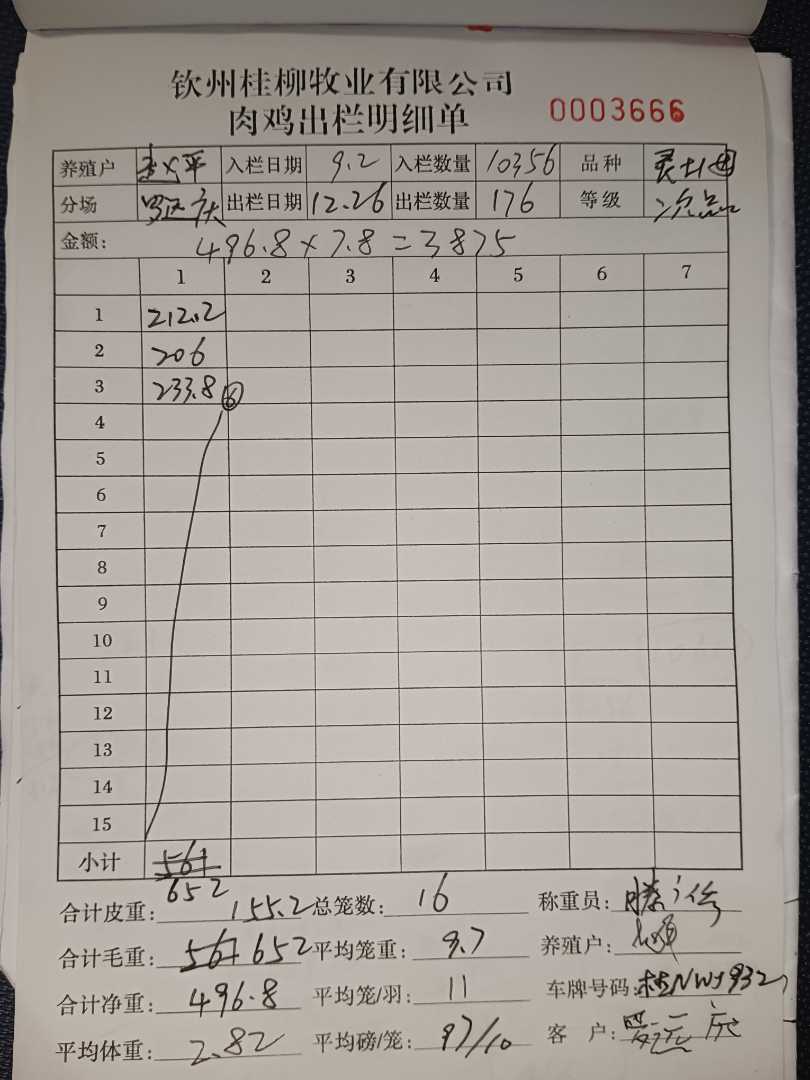 钦州桂柳牧业有限公司
肉鸡出栏明细单 0003666
养殖户 平 入栏日期 9.2 入栏数量 10356 品种 灵土
分场 罗 庆 出栏日期 12.26 出栏数量 176 等级 次品
金额: 496.8×7.8=3875
1 2 3 4 5 6 7
1 212.2
2 206
3 233.8 ⑥
4
5
6
7
8
9
10
11
12
13
14
15
小计 561
652
合计皮重: 155.2 总笼数: 16 称重员: 滕
合计毛重: 561 652 平均笼重: 9.7 养殖户:
合计净重: 496.8 平均笼/羽: 11 车牌号码: 桂NWJ932
平均体重: 2.82 平均磅/笼: 97/10 客 户: 罗远庆